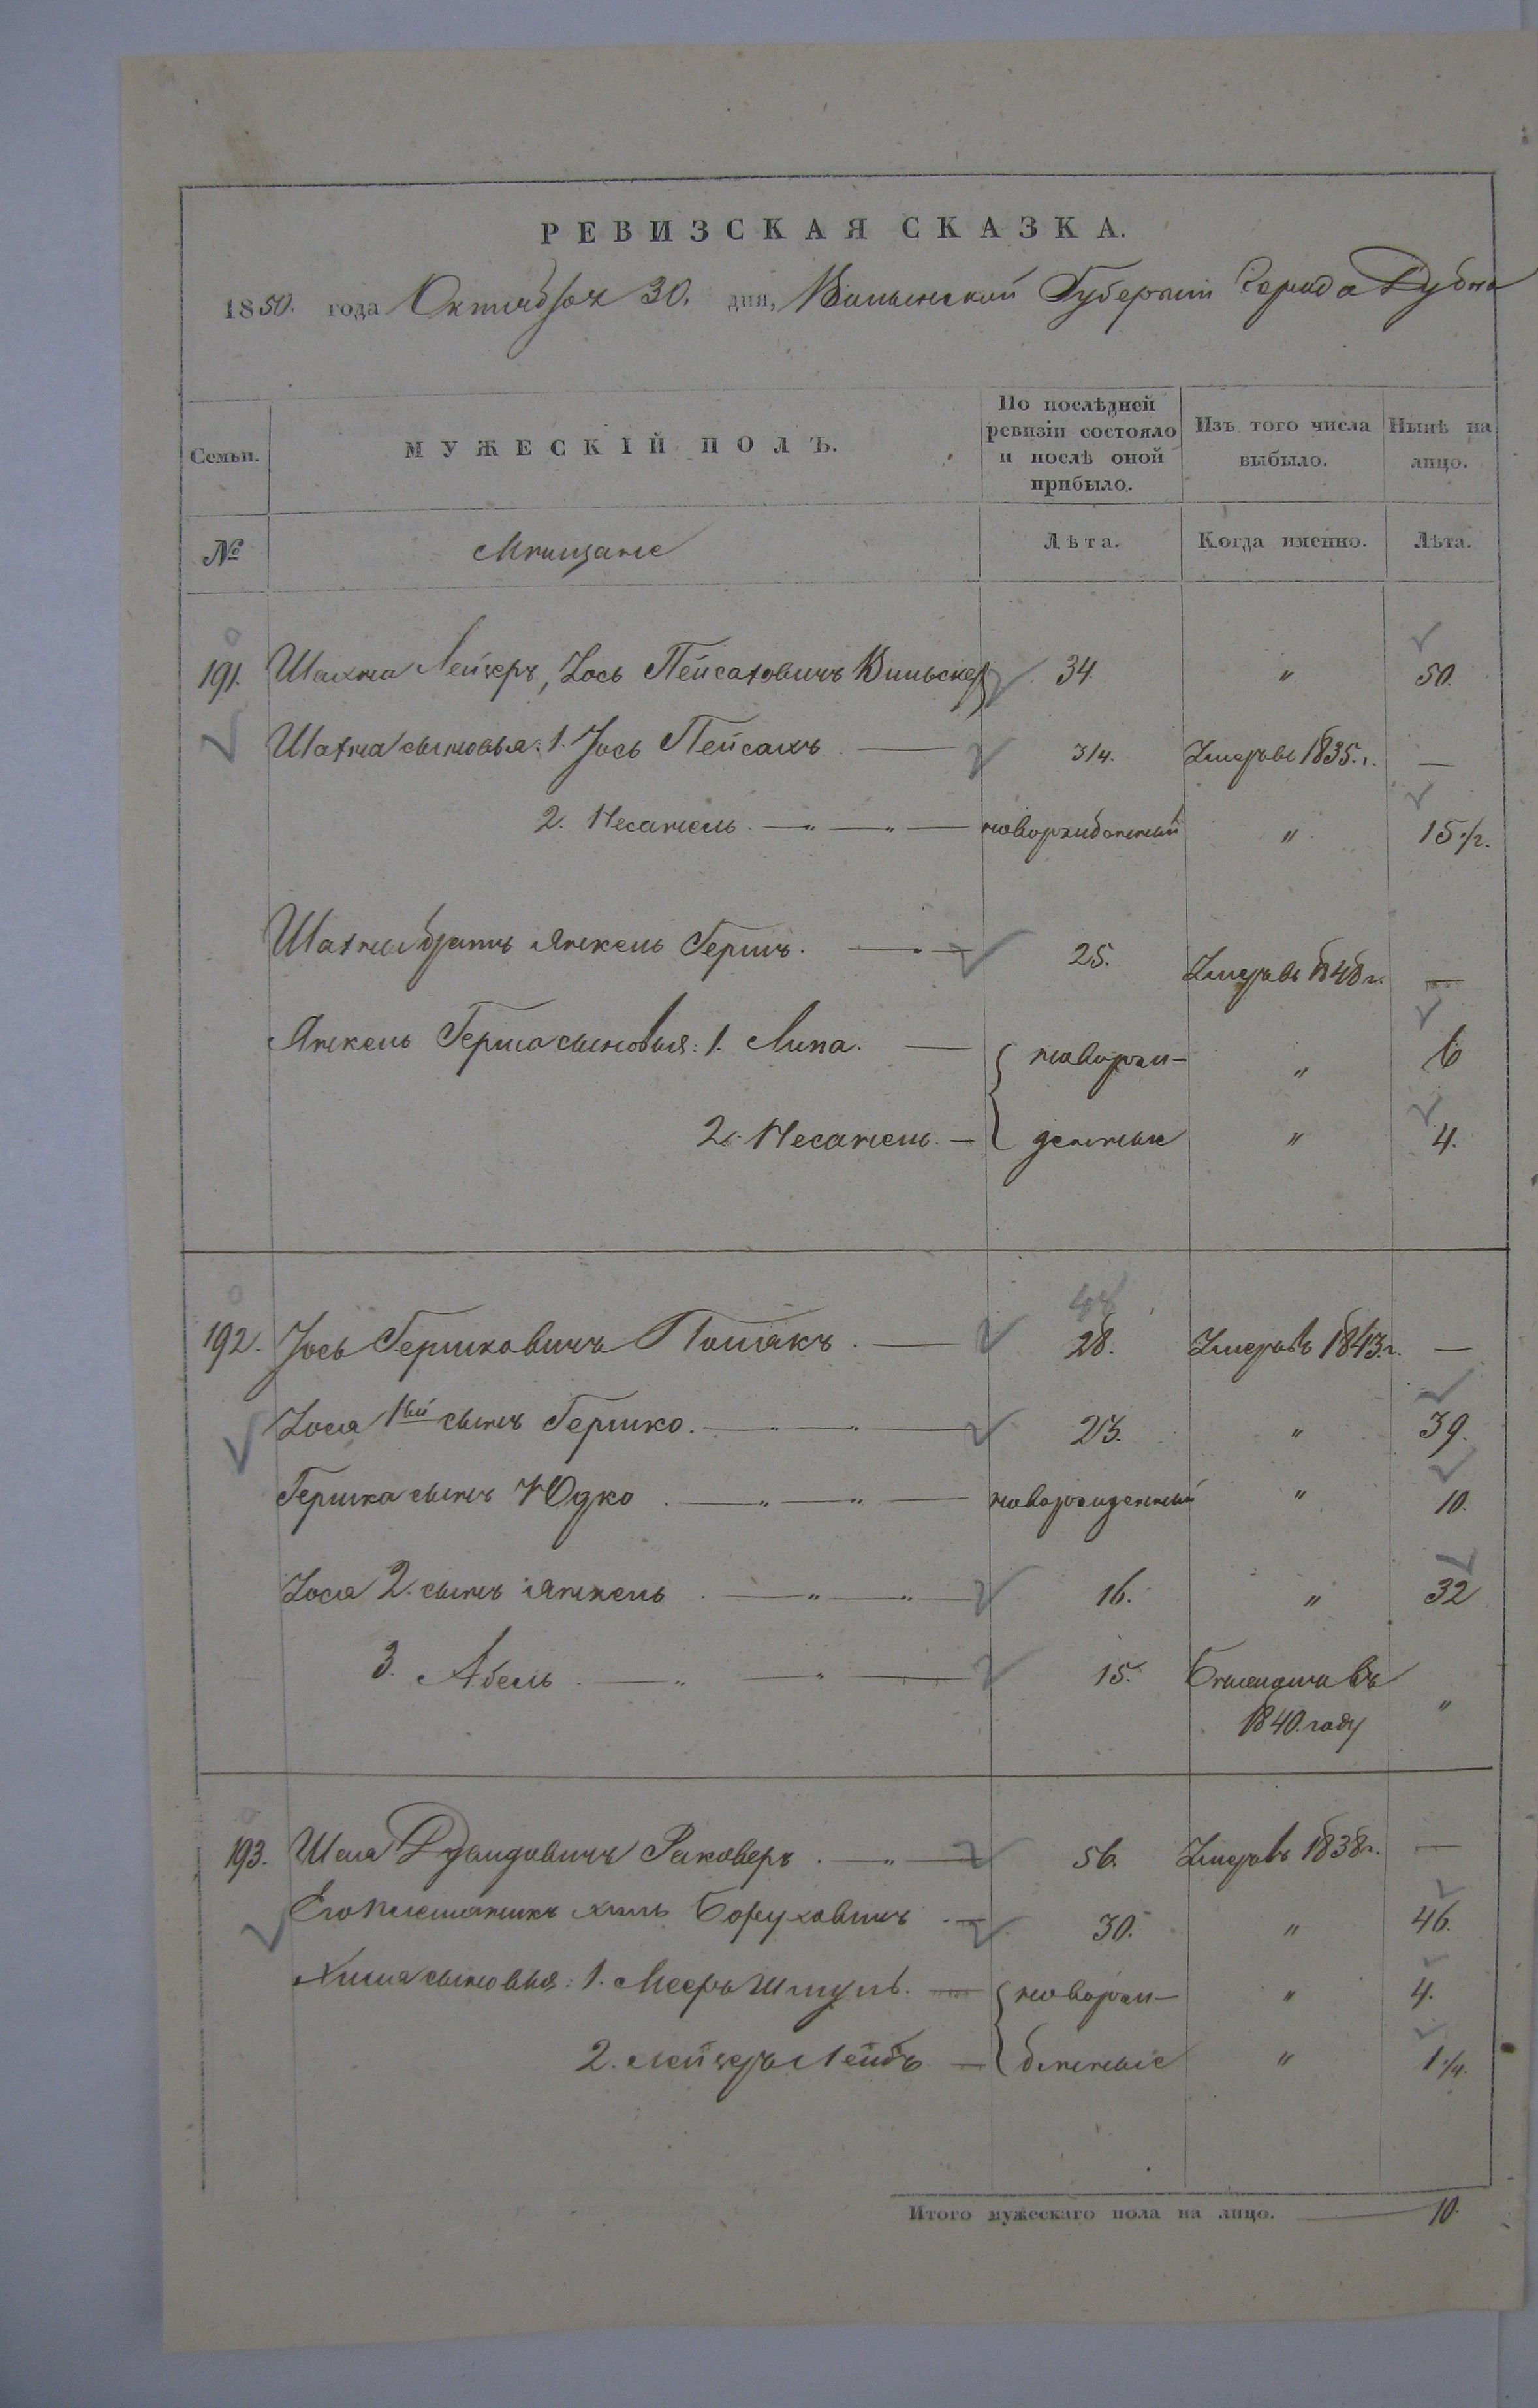 РЕВИЗСКАЯ СКАЗКА.
1850. года Октября 30. дня, Волынской Губернии Города Дубна
Семьи.
МУЖЕСКІЙ ПОЛЪ.
По послѣдней ревизіи состояло и послѣ оной прибыло.
Изъ того числа выбыло.
Нынѣ на лицо.
№ Мѣщане Лѣта. Когда именно. Лѣта.
191. Шахна Лейзеръ, Іось Пейсаховичъ 34. " 50.
Шахна сыновья: 1. Іось Пейсахъ 3/4. Умеръ въ 1835. г. —
2. Несанель новорожденный " 15 1/2.
Шахны братъ Янкель Гершъ. 25. Умеръ въ 1848 г. —
Янкель Герша сыновья: 1. Липа. новорож- " 6
2. Несанель денные " 4.
192. Іось Гершковичъ 48 28. Умеръ въ 1843. г. —
Іося 1ый сынъ Гершко. 23. " 39.
Гершка сынъ Юдко новорожденный " 10.
Іося 2. сынъ Янкель 16. " 32
3. Абель 15. въ "
1840. году
193. Шая Дувидовичъ Раковеръ. 56. Умеръ въ 1838 г. —
Его племянникъ Хиль Боруховичъ 30. " 46.
Хиля сыновья: 1. Мееръ Шмуль. новорож- " 4.
2. Лейзеръ Лейбъ денные " 1 1/4.
Итого мужескаго пола на лицо. 10.